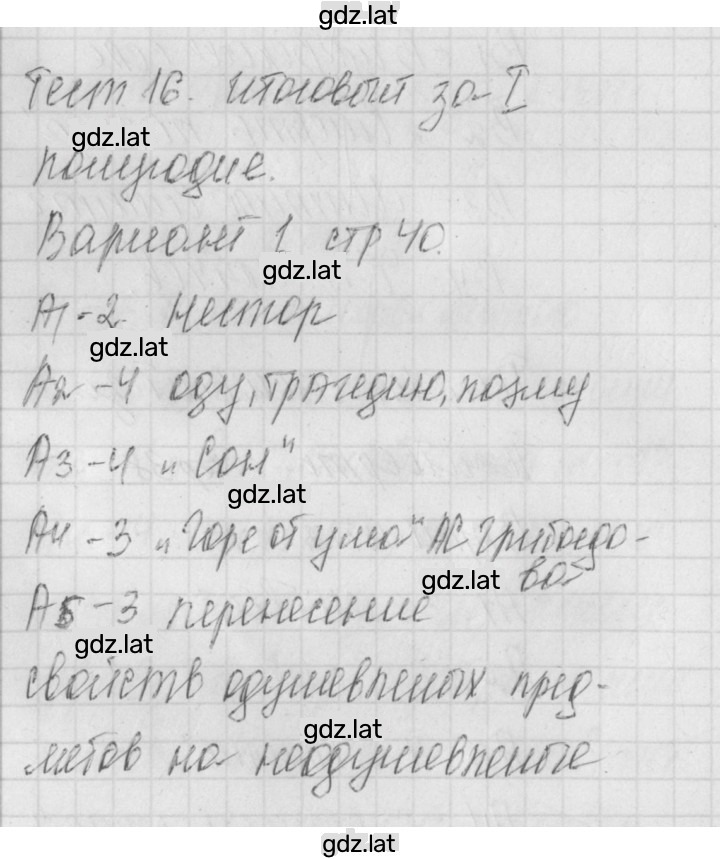 gdz.lat
Тест 16. Итоговый за I
gdz.lat
полугодие.
Вариант 1 стр 40.
gdz.lat
А1-2. Нестор
gdz.lat
А2-4 оду, трагедию, поэму
А3-4 „Сон"
gdz.lat
А4-3 „Горе от ума" АС Грибоедо-
gdz.lat ва
А5-3 перенесение
gdz.lat
свойств одушевленых пред-
gdz.lat
метов на неодушевленые
gdz.lat